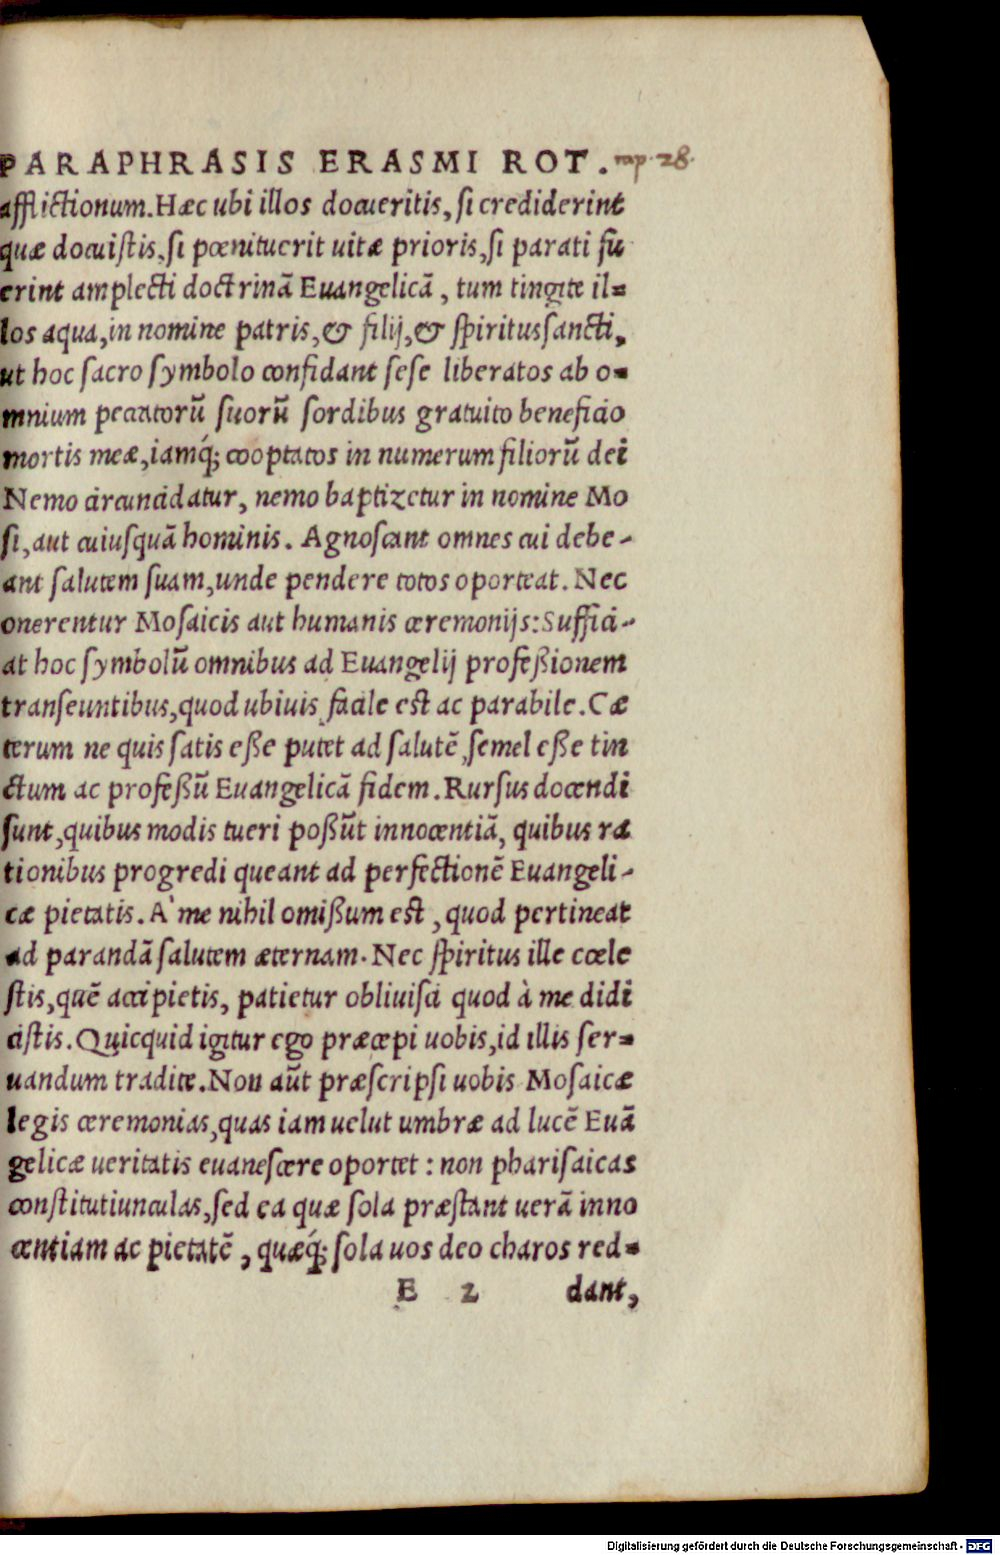 PARAPHRASIS ERASMI ROT. cap. 28.
afflictionum. Hæc ubi illos docueritis, si crediderint
quæ docuistis, si pœnituerit uitæ prioris, si parati fu
erint amplecti doctrinã Euangelicã, tum tingite il=
los aqua, in nomine patris, & filij, & spiritus sancti,
ut hoc sacro symbolo confidant sese liberatos ab o=
mnium peccatorũ suorũ sordibus gratuito beneficio
mortis meæ, iamq́; cooptatos in numerum filiorũ dei
Nemo circuncidatur, nemo baptizetur in nomine Mo
si, aut cuiusquã hominis. Agnoscant omnes cui debe-
ant salutem suam, unde pendere totos oporteat. Nec
onerentur Mosaicis aut humanis ceremonijs: Suffici-
at hoc symbolũ omnibus ad Euangelij professionem
transeuntibus, quod ubiuis facile est ac parabile. Cæ
terum ne quis satis esse putet ad salutẽ, semel esse tin
ctum ac professũ Euangelicã fidem. Rursus docendi
sunt, quibus modis tueri possũt innocentiã, quibus ra
tionibus progredi queant ad perfectionẽ Euangeli-
cæ pietatis. A' me nihil omissum est, quod pertineat
ad parandã salutem æternam. Nec spiritus ille cœle
stis, quẽ accipietis, patietur obliuisci quod à me didi
cistis. Quicquid igitur ego præcepi uobis, id illis ser=
uandum tradite. Non aũt præscripsi uobis Mosaicæ
legis ceremonias, quas iam uelut umbræ ad lucẽ Euã
gelicæ ueritatis euanescere oportet: non pharisaicas
constitutiunculas, sed ea quæ sola præstant uerã inno
centiam ac pietatẽ, quæq́; sola uos deo charos red=
E 2 dant,
Digitalisierung gefördert durch die Deutsche Forschungsgemeinschaft - DFG